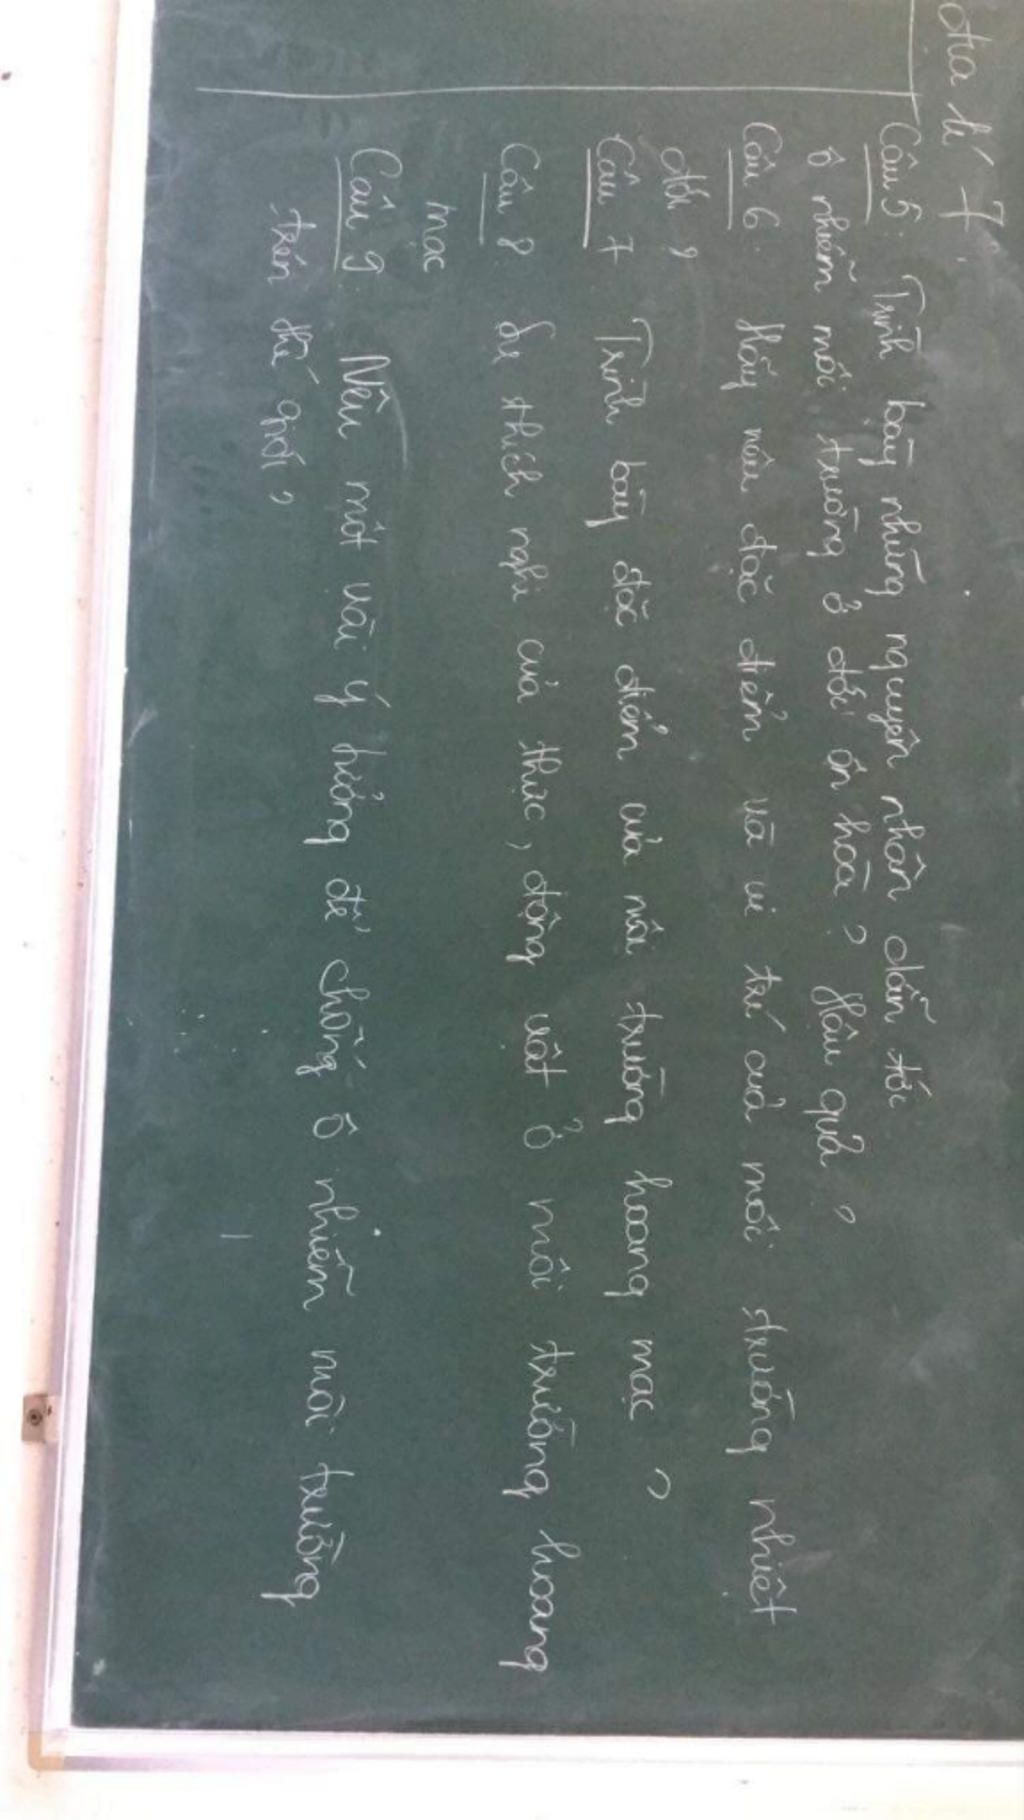 Địa lí 7.
Câu 5: Trình bày những nguyên nhân dẫn tới
ô nhiễm môi trường ở đới ôn hòa? Hậu quả?
Câu 6: Hãy nêu đặc điểm và vị trí của môi trường nhiệt
đới?
Câu 7 Trình bày đặc điểm của môi trường hoang mạc?
Câu 8: Sự thích nghi của thực, động vật ở môi trường hoang
mạc
Câu 9: Nêu một vài ý tưởng để chống ô nhiễm môi trường
trên thế giới?